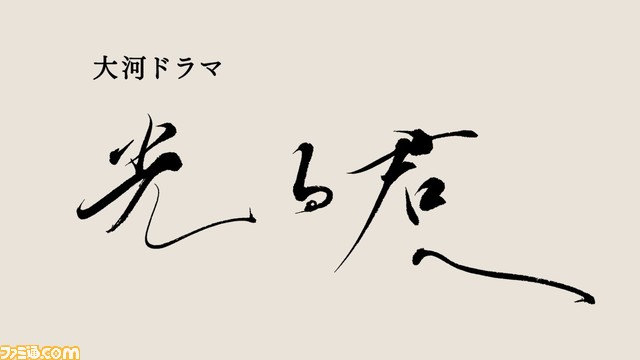 大河ドラマ
光る君へ
ファミ通.com